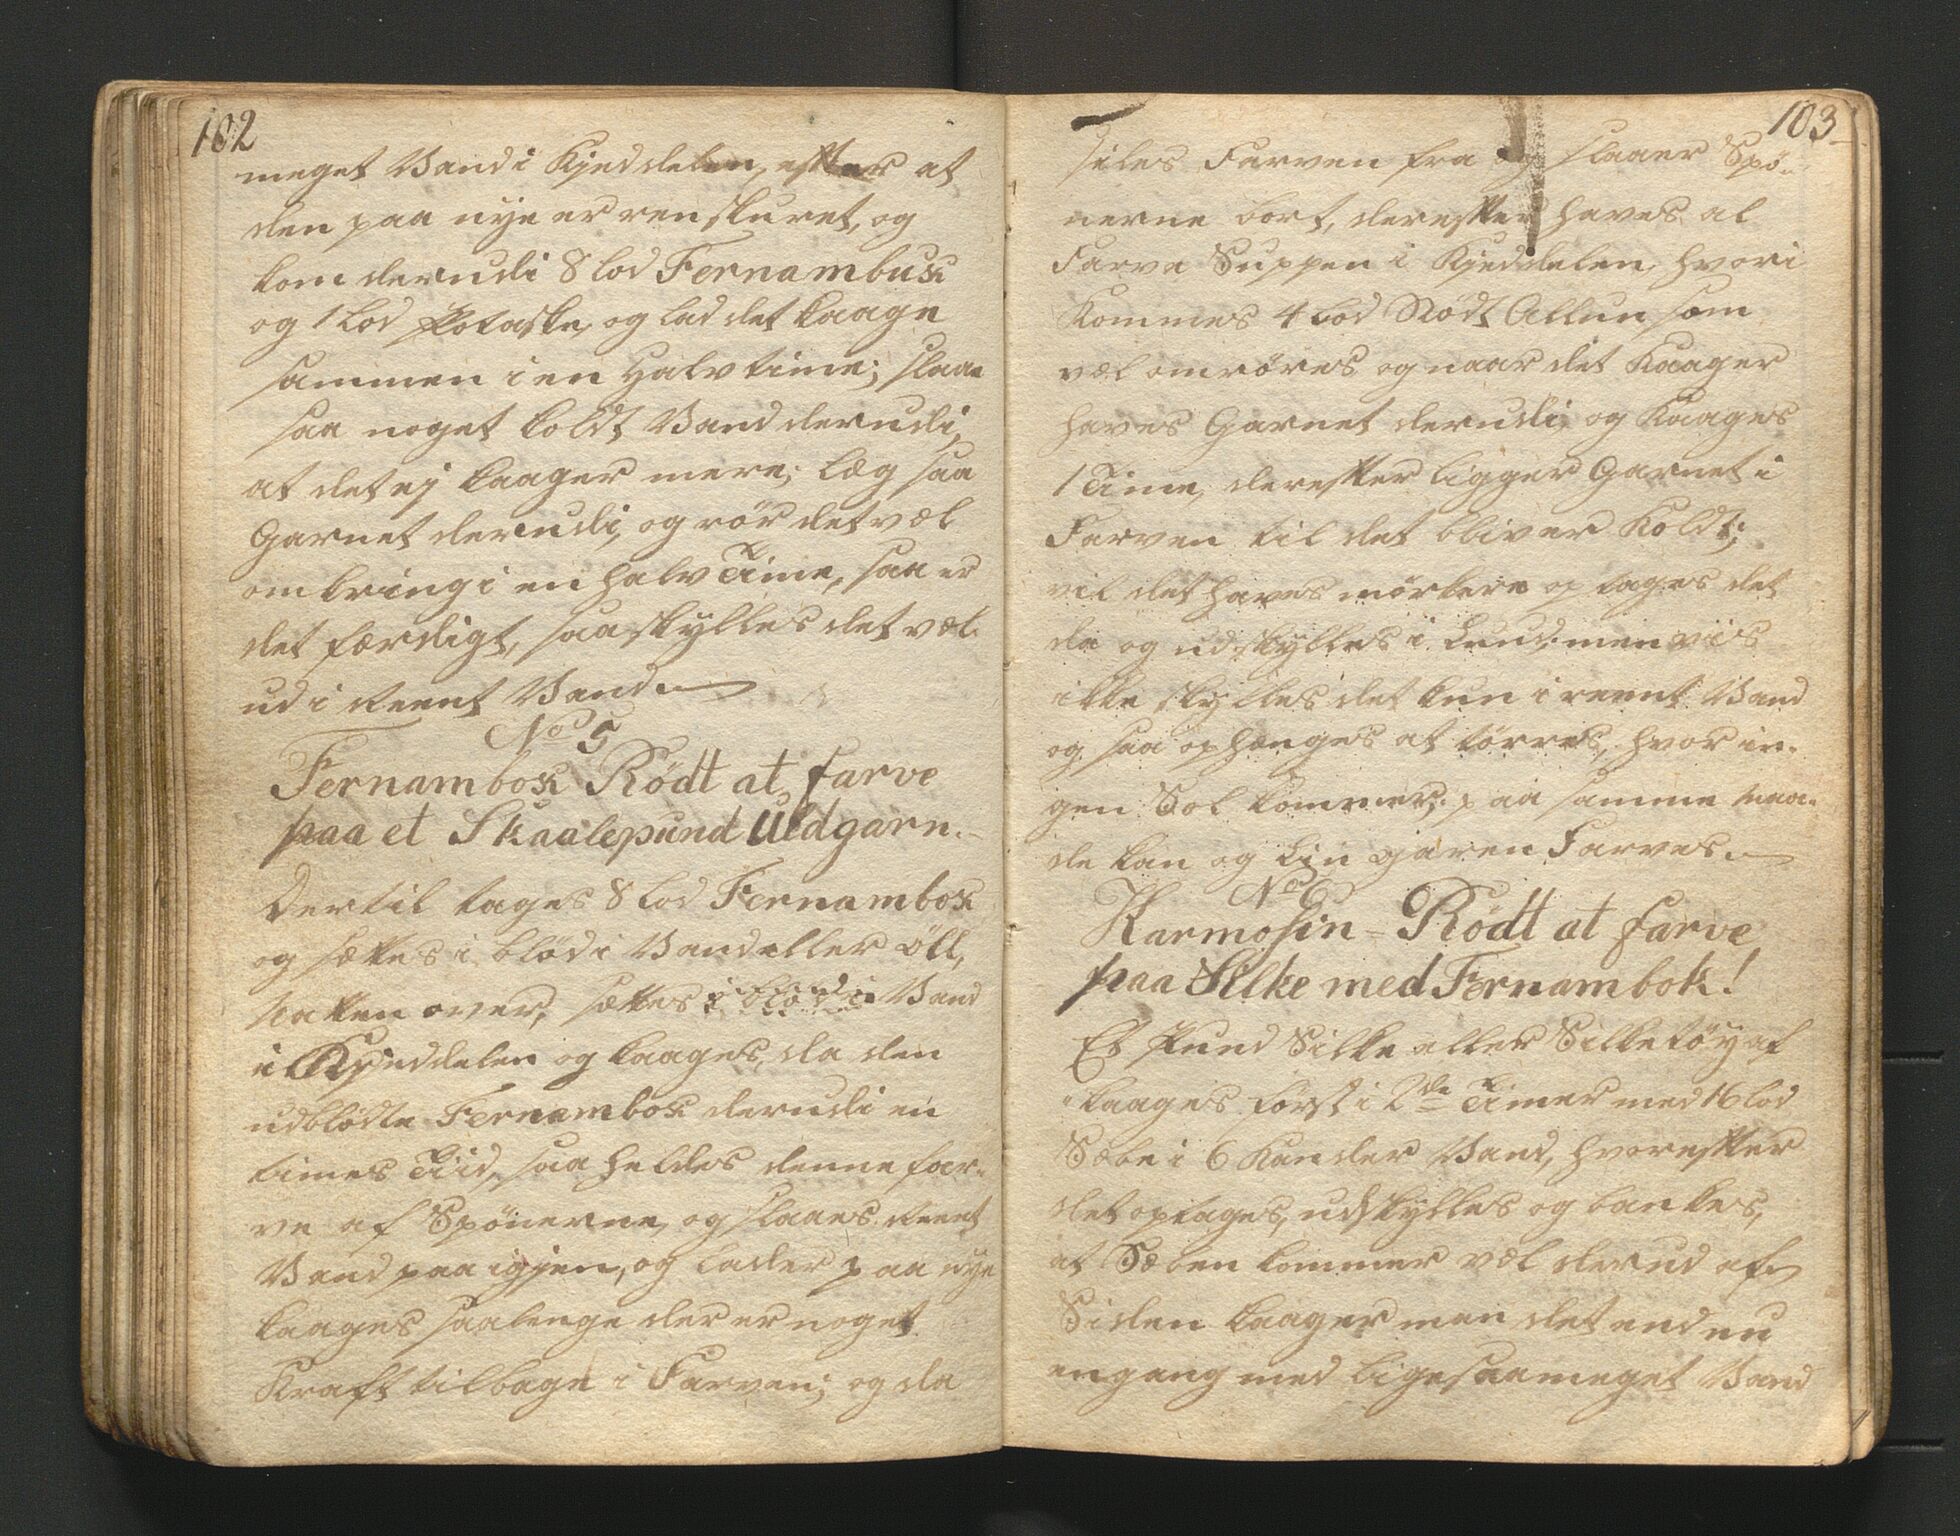 102
meget Vand i Kjeddelen, efter at
den paa nye er ren skuret, og
kom derudi 8 lod Fernambuk
og 1 Lod Potaske, og lad det kaage
sammen i en Halv time; slaae
saa noget koldt Vand derudi,
at det ej kaager mere; læg saa
Garnet derudi, og rør det vel
omkring i en halv Time, saa er
det færdigt, saa skylles det vel
ud i Reent Vand
No 5
Fernambok Rödt at farve
paa et Skaalepund Uldgarn.
Dertil tages 8 Lod Fernambok
og sættes i blöd i Vand eller öll,
Natten over; sættes Vand
i Kjeddelen og kaages, da den
udblödte Fernambok derudi en
times Tiid, saa heldes denne far-
ve af Spönerne, og slaaes Reent
Vand paa igjen, og lader paa nye
kaages saalenge der er noget
Kraft tilbage i Farven; og da
103
siles Farven fra og slaaer Spö-
nerne bort, derefter haves al
Farve Suppen i Kjeddelen, hvori
Kommes 4 Lod Rödt Allun som
vel omröres og naar det Kaager
haves Garnet derudi, og Kaages
1 Time, derefter ligger Garnet i
Farven til det bliver Koldt;
vil det haves mörkere optages det
da og udskylles i Lud; men vis
ikke skylles det kun i reent Vand
og saa ophænges at törres, hvor in-
gen Sol kommer; paa samme Maa-
de kan og Lin garen Farves.
No 6
Karmosin-Rödt at farve
paa Silke med Fernambok!
Et Pund Silke eller Silketöy af
kaages först i 2de Timer med 16 lod
Sæbe i 6 Kander Vand, hvorefter
det optages, udskylles og bankes,
at Sæben kommer vel derud af
Siden kaager man det endnu
engang med ligesaameget Vand